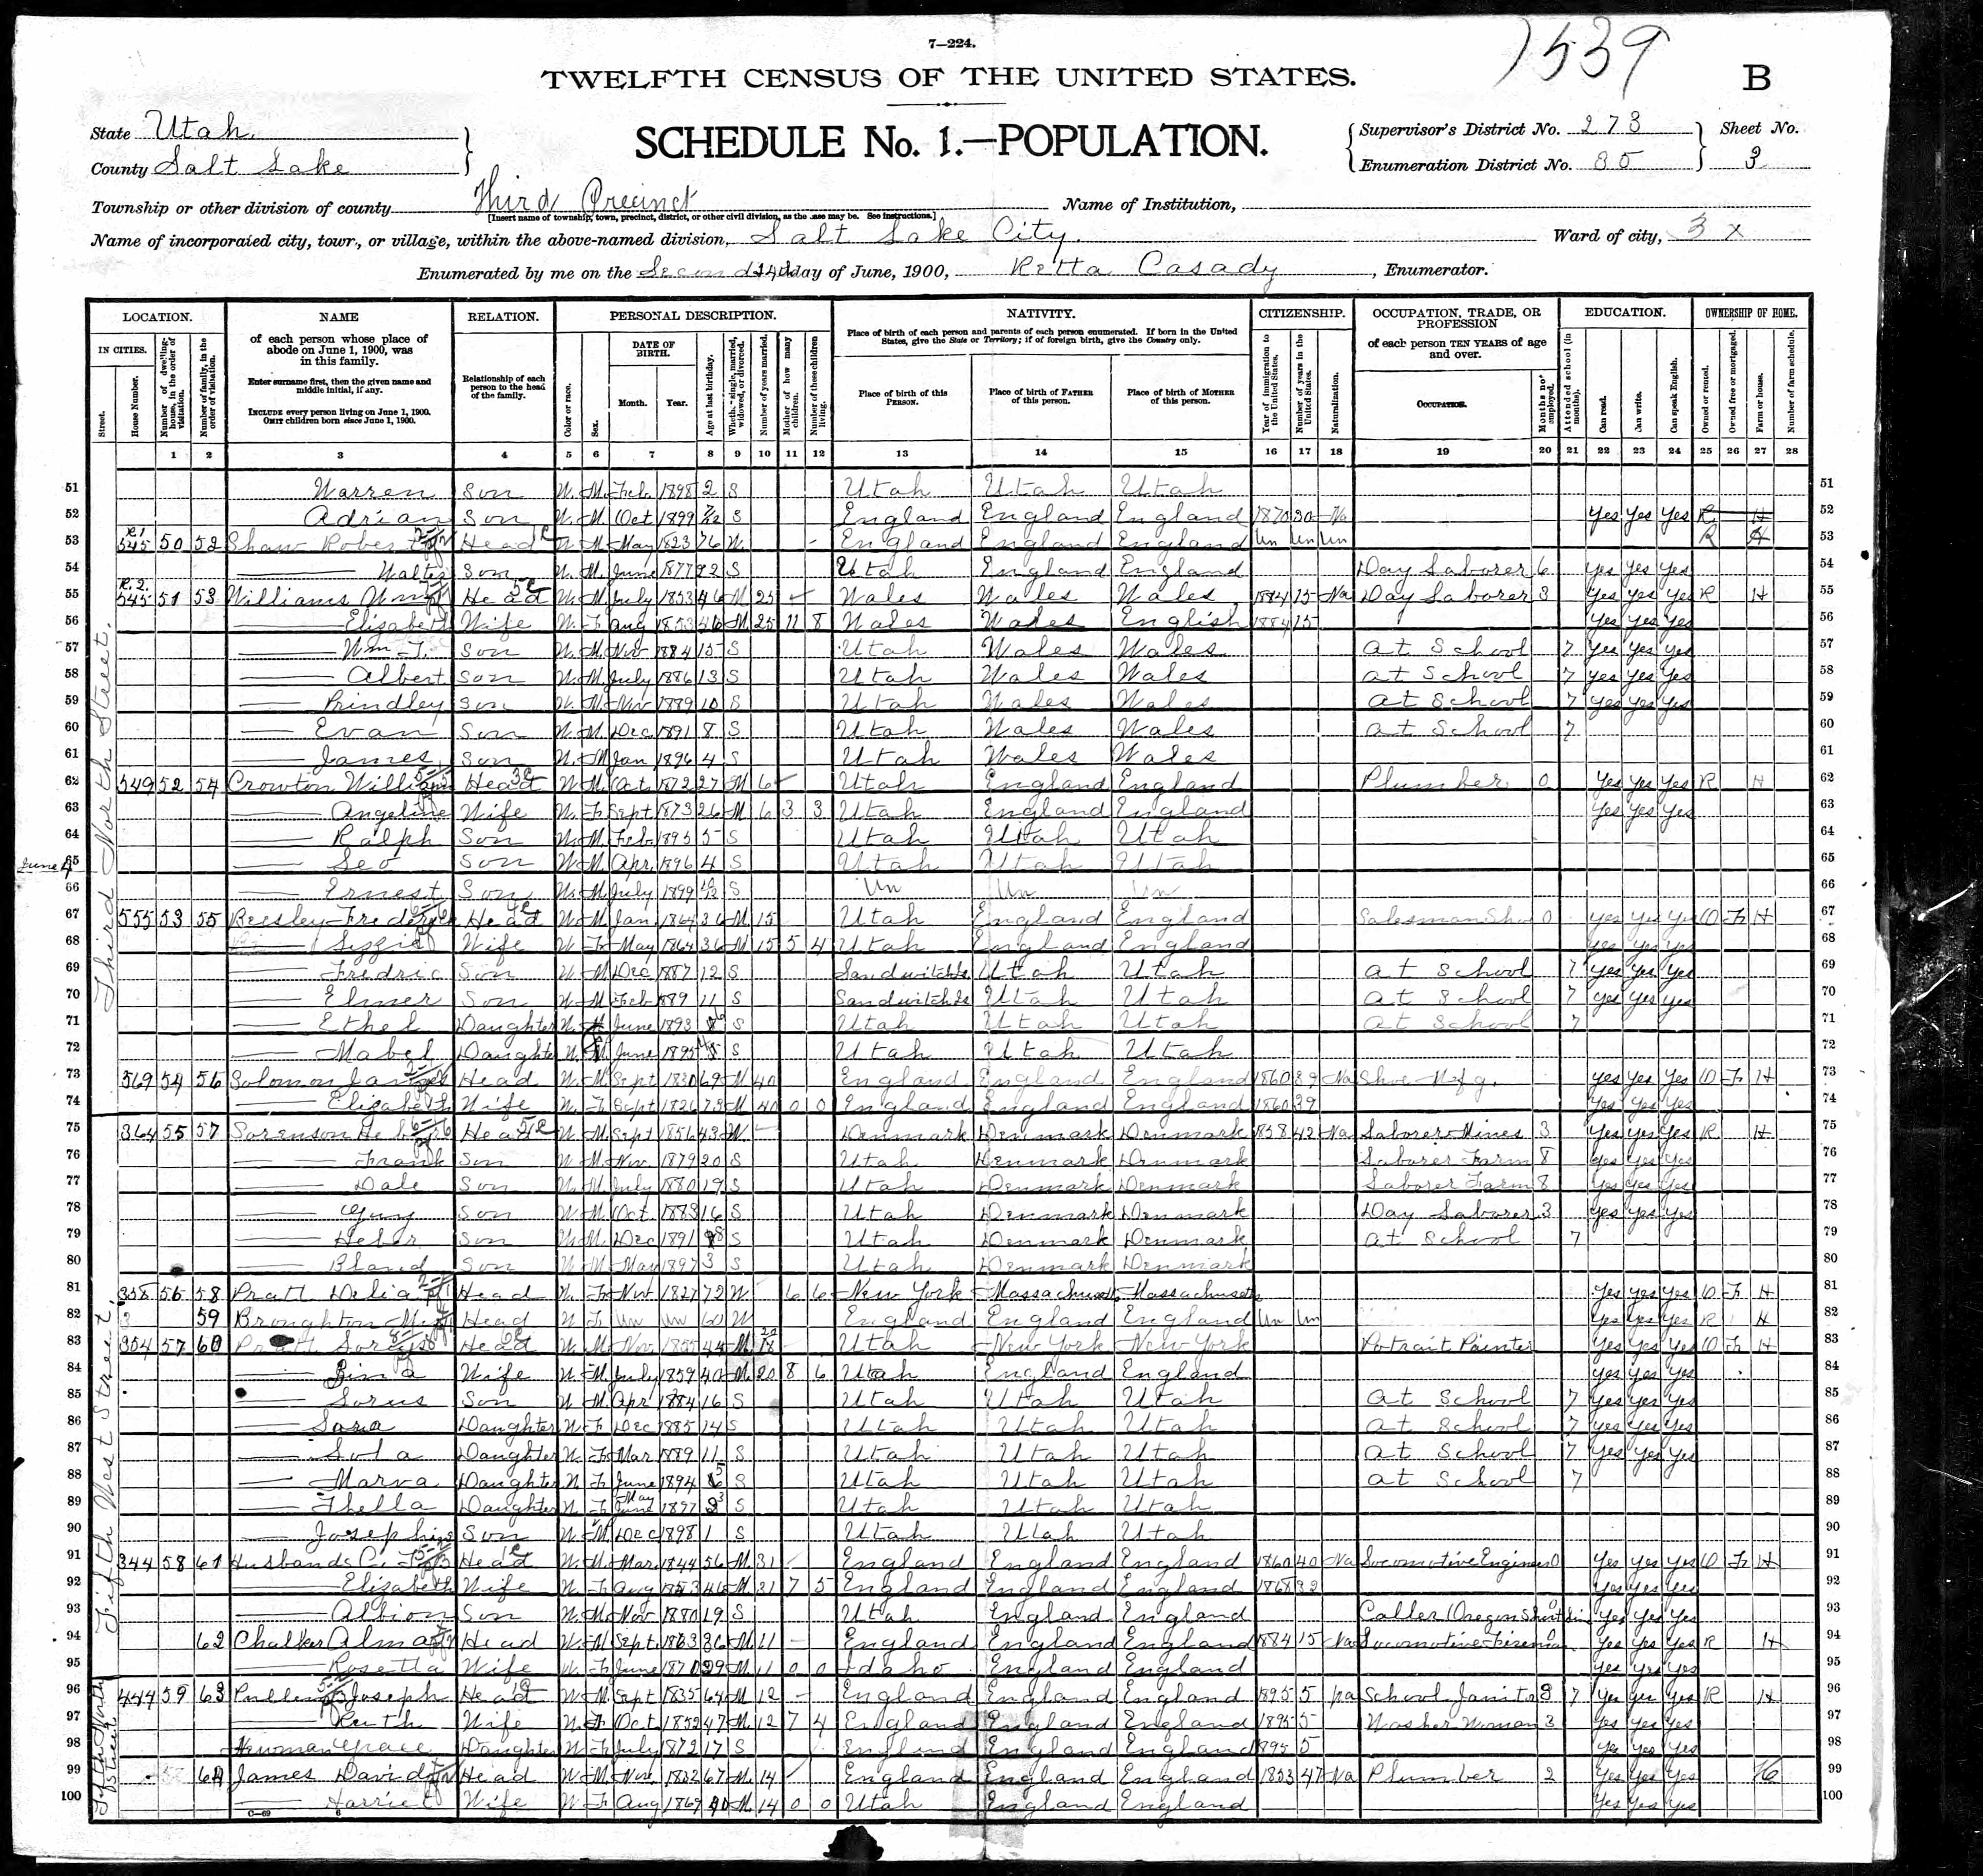 7—224.
1539
TWELFTH CENSUS OF THE UNITED STATES.
B
State Utah.
SCHEDULE No. 1.—POPULATION.
Supervisor's District No. 273
Sheet No.
County Salt Lake
Enumeration District No. 85
3
Township or other division of county Third Precinct
Name of Institution,
[Insert name of township, town, precinct, district, or other civil division, as the case may be. See instructions.]
Name of incorporated city, town, or village, within the above-named division, Salt Lake City.
Ward of city, 3 X
Enumerated by me on the Second day of June, 1900, Retta Casady, Enumerator.
LOCATION. NAME RELATION. PERSONAL DESCRIPTION. NATIVITY. CITIZENSHIP. OCCUPATION, TRADE, OR PROFESSION EDUCATION. OWNERSHIP OF HOME.
IN CITIES. Street. House Number. Number of dwelling-house, in the order of visitation. Number of family, in the order of visitation.
of each person whose place of abode on June 1, 1900, was in this family.
Enter surname first, then the given name and middle initial, if any.
INCLUDE every person living on June 1, 1900. OMIT children born since June 1, 1900.
Relationship of each person to the head of the family.
Color or race. Sex. DATE OF BIRTH. Month. Year. Age at last birthday. Whether single, married, widowed, or divorced. Number of years married. Mother of how many children. Number of these children living.
Place of birth of each person and parents of each person enumerated. If born in the United States, give the State or Territory; if of foreign birth, give the Country only.
Place of birth of this PERSON. Place of birth of FATHER of this person. Place of birth of MOTHER of this person.
Year of immigration to the United States. Number of years in the United States. Naturalization.
of each person TEN YEARS of age and over.
OCCUPATION. Months not employed.
Attended school (in months). Can read. Can write. Can speak English.
Owned or rented. Owned free or mortgaged. Farm or house. Number of farm schedule.
1 2 3 4 5 6 7 8 9 10 11 12 13 14 15 16 17 18 19 20 21 22 23 24 25 26 27 28
Third North Street.
51 Warren Son W. M. Feb. 1898 2 S Utah Utah Utah 51
52 Adrian Son W. M. Oct 1899 7/12 S England England England 1870 30 Na Yes Yes Yes R H 52
53 545 50 52 Shaw Robert Head W. M. May 1823 76 W. England England England Un Un Un R H 53
54 Walter Son W. M. June 1877 22 S Utah England England Day Laborer 6 Yes Yes Yes 54
55 545 51 53 Williams Wm Head W. M. July 1853 46 M 25 Wales Wales Wales 1884 15 Na Day Laborer 3 Yes Yes Yes R H 55
56 Elizabeth Wife W. F. Aug 1853 46 M. 25 11 8 Wales Wales English 1884 15 Yes Yes Yes 56
57 Wm T. Son W. M. Nov 1884 15 S Utah Wales Wales at School 7 Yes Yes Yes 57
58 Albert Son W. M. July 1886 13 S Utah Wales Wales at School 7 Yes Yes Yes 58
59 Brindley Son W. M. Nov 1889 10 S Utah Wales Wales at School 7 Yes Yes Yes 59
60 Evan Son W. M. Dec 1891 8 S Utah Wales Wales at School 7 60
61 James Son W. M. Jan 1896 4 S Utah Wales Wales 61
62 549 52 54 Crowton William Head W. M. Oct. 1872 27 M 6 Utah England England Plumber 0 Yes Yes Yes R H 62
63 Angeline Wife W. F. Sept 1873 26 M 6 3 3 Utah England England Yes Yes Yes 63
64 Ralph Son W. M. Feb. 1895 5 S Utah Utah Utah 64
June 4
65 Leo Son W. M. Apr. 1896 4 S Utah Utah Utah 65
66 Ernest Son W. M. July 1899 10/12 S Un Un Un 66
67 555 53 55 Beesley Frederick Head W. M. Jan. 1864 36 M 15 Utah England England Salesman 0 Yes Yes Yes O F H 67
68 Lizzie Wife W. F. May 1864 36 M 15 5 4 Utah England England Yes Yes Yes 68
69 Fredric Son W. M. Dec 1887 12 S Sandwitch Is Utah Utah at School 7 Yes Yes Yes 69
70 Elmer Son W. M. Feb 1889 11 S Sandwitch Is Utah Utah at School 7 Yes Yes Yes 70
71 Ethel Daughter W. June 1893 S Utah Utah Utah at School 7 71
72 Mabel Daughter W. June 1895 S Utah Utah Utah 72
73 569 54 56 Solomon James Head W. M. Sept 1830 69 M 40 England England England 1860 39 Na Shoe Mfg. Yes Yes Yes O F H 73
74 Elizabeth Wife W. F. Sept 1826 73 M 40 0 0 England England England 1860 39 Yes Yes Yes 74
Fifth West Street.
75 364 55 57 Sorenson Head W. M. Sept 1856 43 W Denmark Denmark Denmark 1858 42 Na Laborer Mines 3 Yes Yes Yes R H 75
76 Frank Son W. M. Nov. 1879 20 S Utah Denmark Denmark Laborer Farm 8 Yes Yes Yes 76
77 Dale Son W. M. July 1880 19 S Utah Denmark Denmark Laborer Farm 8 Yes Yes Yes 77
78 Guy Son W. M. Oct. 1883 16 S Utah Denmark Denmark Day Laborer 3 Yes Yes Yes 78
79 Heber Son W. M. Dec 1891 8 S Utah Denmark Denmark at School 7 79
80 Bland Son W. M. May 1897 3 S Utah Denmark Denmark 80
81 358 56 58 Pratt Delia Head W. F. Nov 1827 72 W 6 6 New York Massachusetts Massachusetts Yes Yes Yes O F H 81
82 59 Broughton Head W. F. Un Un 60 W England England England Un Un Yes Yes Yes R H 82
83 354 57 60 Pratt Head W. M. Nov. 1855 44 M. Utah New York New York Potrait Painter Yes Yes Yes O F H 83
84 Wife W. F. July 1859 40 M. 20 8 6 Utah England England Yes Yes Yes 84
85 Lorus Son W. M. Apr 1884 16 S Utah Utah Utah at School 7 Yes Yes Yes 85
86 Daughter W. F. Dec 1885 14 S Utah Utah Utah at School 7 Yes Yes Yes 86
87 Daughter W. F. Mar 1889 11 S Utah Utah Utah at School 7 Yes Yes Yes 87
88 Marva Daughter W. F. June 1894 5 S Utah Utah Utah at School 7 88
89 Thella Daughter W. F. May 1897 3 S Utah Utah Utah 89
90 Son W. M. Dec 1898 1 S Utah Utah Utah 90
91 344 58 61 Husbands Head W. M. Mar. 1844 56 M. 31 England England England 1860 40 Na Locomotive Engineer 0 Yes Yes Yes O F H 91
92 Elizabeth Wife W. F. Aug 1853 46 M. 31 7 5 England England England 1868 32 Yes Yes Yes 92
93 Albion Son W. M. Nov 1880 19 S Utah England England Caller Oregon Short Line Yes Yes Yes 93
94 62 Chalker Alma Head W. M. Sept. 1863 36 M. 11 England England England 1884 15 Na Locomotive Fireman Yes Yes Yes R H 94
95 Rosetta Wife W. F. June 1870 29 M. 11 0 0 Idaho England England Yes Yes Yes 95
96 444 59 63 Joseph Head W. M. Sept 1835 64 M 12 England England England 1895 5 Na School Janitor 8 7 Yes Yes Yes R H 96
97 Ruth Wife W. F. Oct. 1852 47 M. 12 7 4 England England England 1895 5 Washer Woman 3 Yes Yes Yes 97
98 Newman Grace Daughter W. F. July 17 S England England England 1895 5 Yes Yes Yes 98
99 64 James David Head W. M. Nov. 1832 67 M. 14 England England England 1853 47 Na Plumber 2 Yes Yes Yes 99
100 Harriet Wife W. F. Aug 1869 M. 14 0 0 Utah England England Yes Yes Yes 100
C—69 6